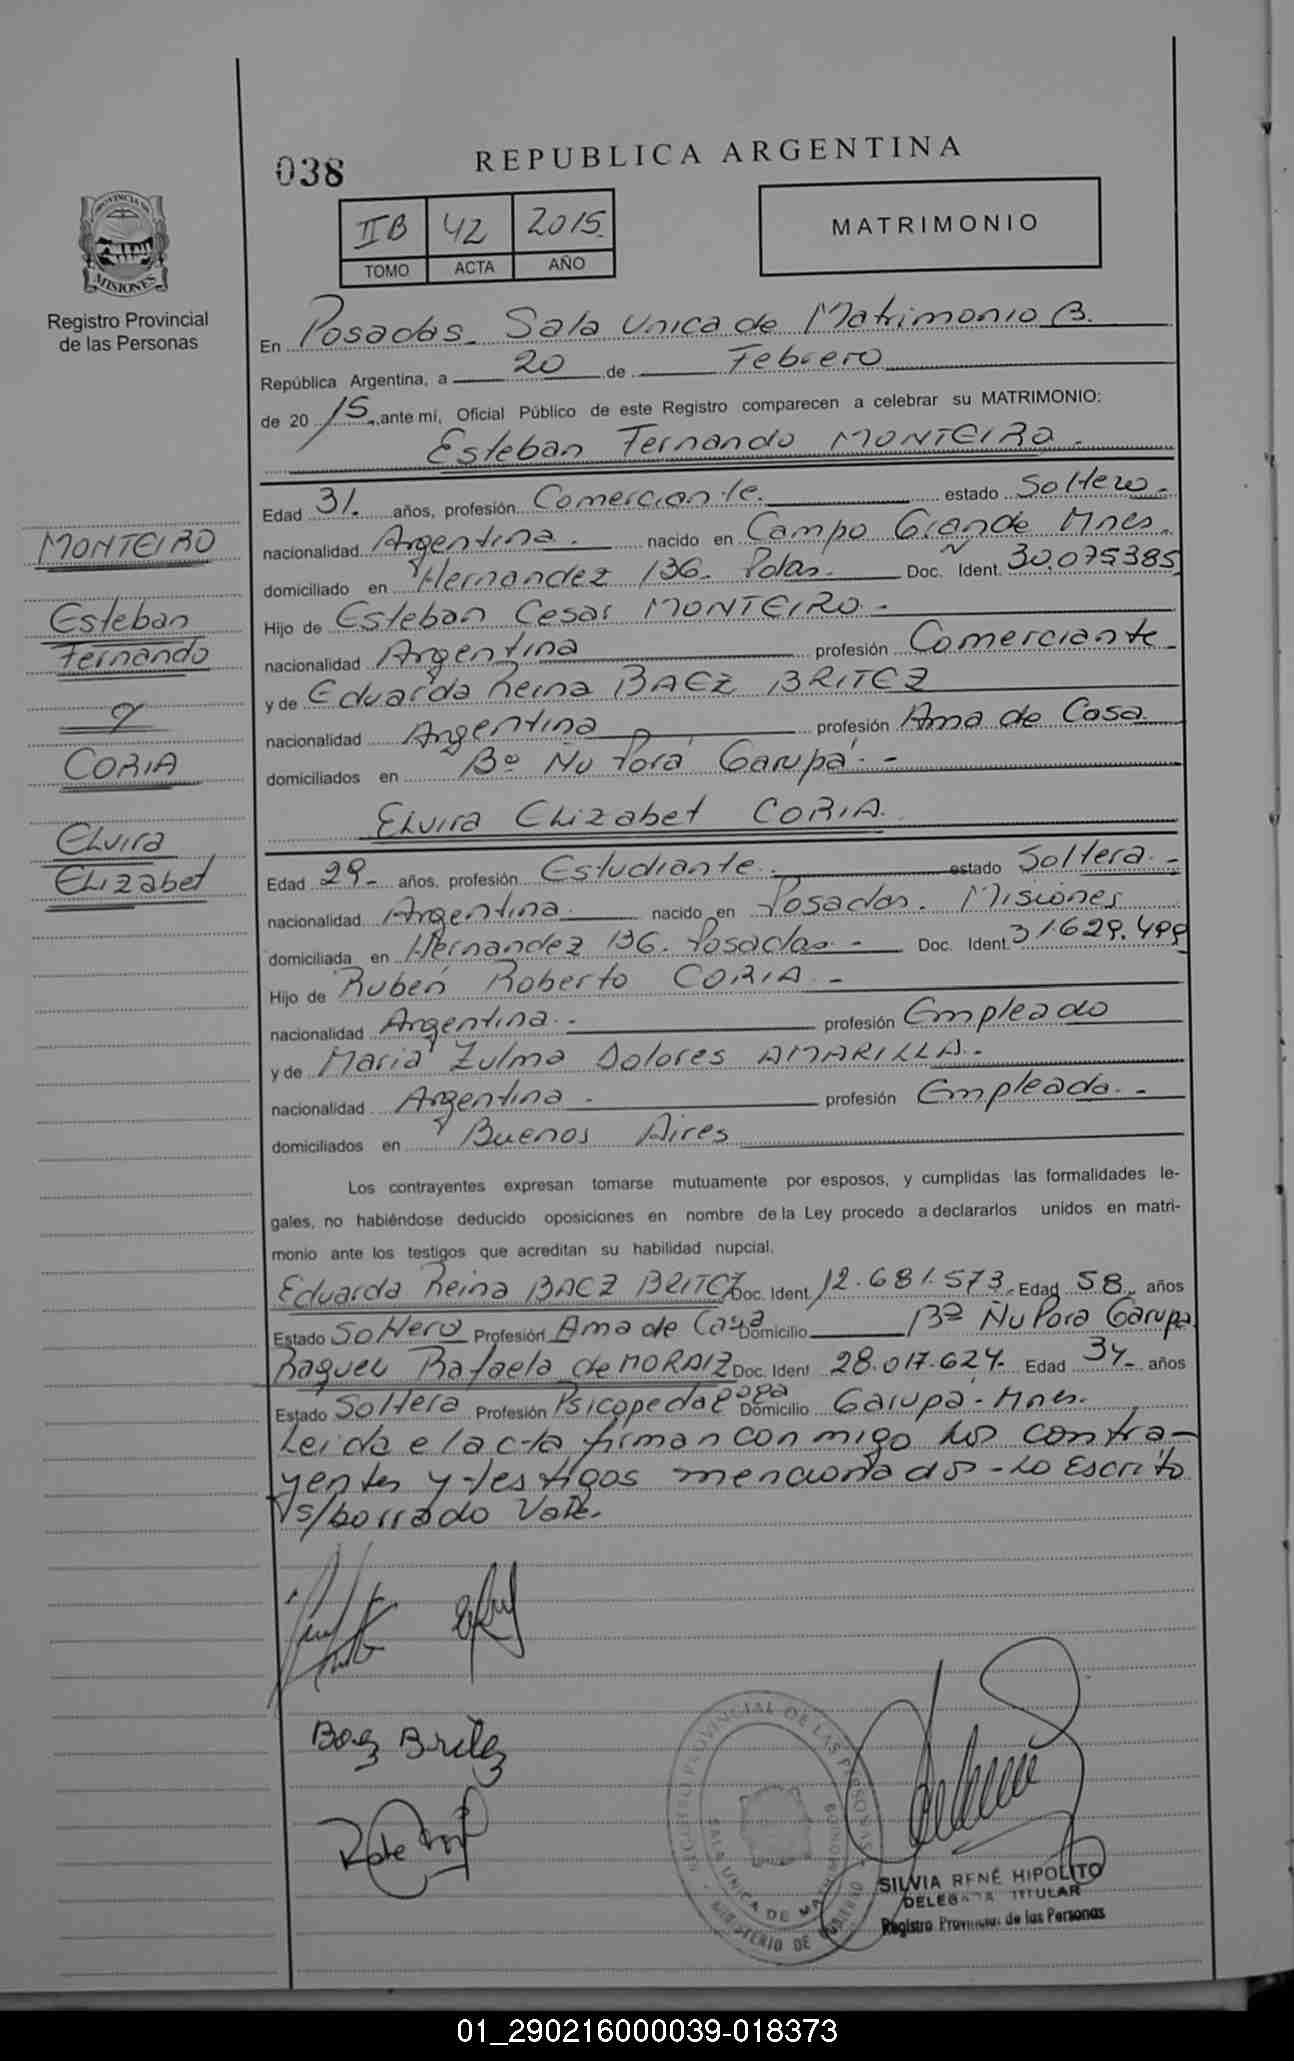 038
REPUBLICA ARGENTINA
PROVINCIA DE
MISIONES
Registro Provincial
de las Personas
IIB 42 2015
TOMO ACTA AÑO
MATRIMONIO
En Posadas. Sala Unica de Matrimonio B.
República Argentina, a 20 de Febrero
de 2015, ante mí, Oficial Público de este Registro comparecen a celebrar su MATRIMONIO:
Esteban Fernando MONTEIRO.
Edad 31. años, profesión Comerciante. estado Soltero.-
nacionalidad Argentina. nacido en Campo Grande Mnes.
domiciliado en Hernandez 136. Pdas. Doc. Ident. Nº 30.075385
Hijo de Esteban Cesar MONTEIRO.-
nacionalidad Argentina profesión Comerciante
y de Eduarda Reina BAEZ BRITEZ
nacionalidad Argentina profesión Ama de Casa
domiciliados en Bº Ñu Porá Garupá.-
Elvira Elizabet CORIA.
Edad 29- años, profesión Estudiante. estado Soltera.-
nacionalidad Argentina. nacido en Posadas. Misiones
domiciliada en Hernandez 136. Posadas.- Doc. Ident. 31629.499
Hijo de Rubén Roberto CORIA.-
nacionalidad Argentina.- profesión Empleado
y de Maria Zulma Dolores AMARILLA.-
nacionalidad Argentina.- profesión Empleada.-
domiciliados en Buenos Aires
Los contrayentes expresan tomarse mutuamente por esposos, y cumplidas las formalidades le-
gales, no habiéndose deducido oposiciones en nombre de la Ley procedo a declararlos unidos en matri-
monio ante los testigos que acreditan su habilidad nupcial.
Eduarda Reina BAEZ BRITEZ Doc. Ident. 12.681.573. Edad 58. años
Estado Soltero Profesión Ama de Casa Domicilio Bº Ñu Pora Garupa
Raquel Rafaela de MORAIZ Doc. Ident 28.017.624. Edad 34- años
Estado Soltera Profesión Psicopedagoga Domicilio Garupá-Mnes.
Leida el acta firman conmigo los contra-
yentes y testigos mencionados - Lo Escrito
s/borrado Vale.
MONTEIRO
Esteban
Fernando
y
CORIA
Elvira
Elizabet
Baez Britez
REGISTRO PROVINCIAL DE LAS PERSONAS
SALA UNICA DE MATRIMONIO
MINISTERIO DE GOBIERNO
SILVIA RENÉ HIPOLITO
DELEGADA TITULAR
Registro Provincial de las Personas
01_290216000039-018373